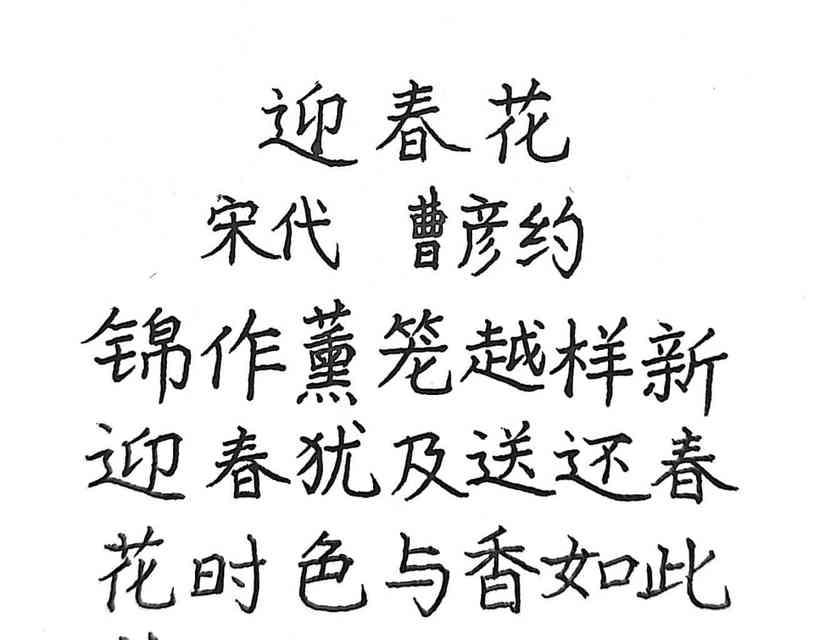 迎春花
宋代 曹彦约
锦作薰笼越样新
迎春犹及送还春
花时色与香如此